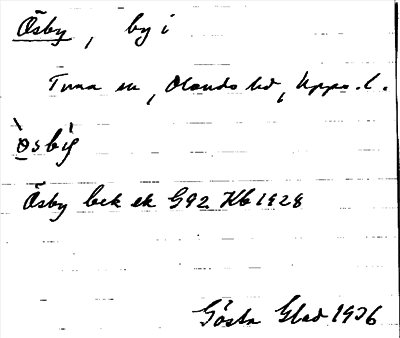 Ösby, by i
Tuna sn, Olands hd, Upps. l.
Ösby bek ek G92 Kb 1928
Gösta Glad 1936